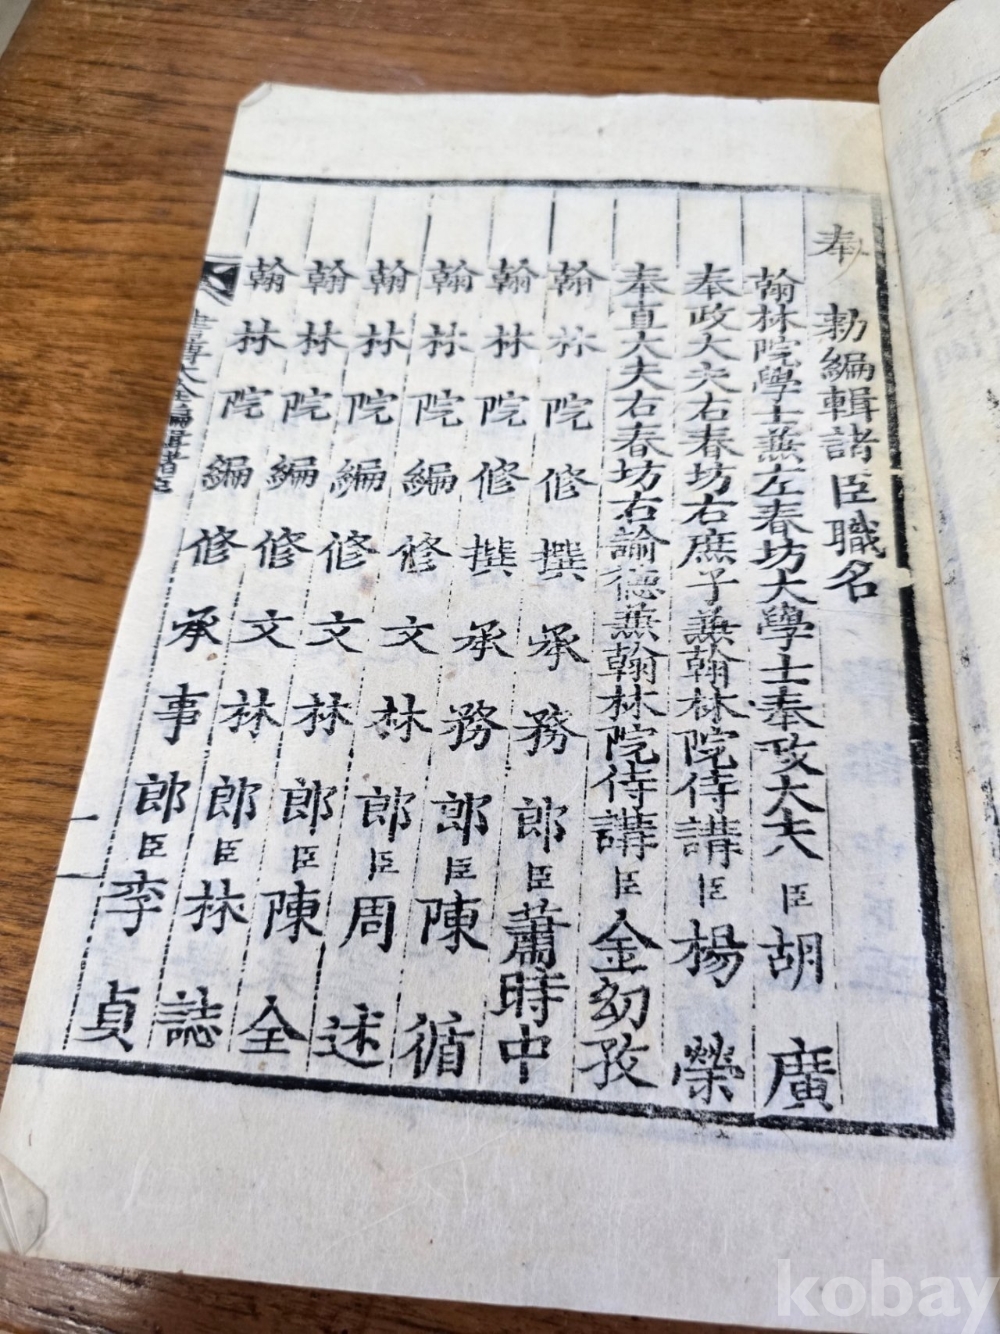 奉 勑編輯諸臣職名
翰林院學士兼左春坊大學士奉政大夫臣胡廣
奉政大夫右春坊右庶子兼翰林院侍講臣楊榮
奉直大夫右春坊右諭德兼翰林院侍講臣金幼孜
翰林院修撰承務郎臣蕭時中
翰林院修撰承務郎臣陳循
翰林院編修文林郎臣周述
翰林院編修文林郎臣陳全
翰林院編修文林郎臣林誌
翰林院編修承事郎臣李貞
書傳大全編輯諸臣
一
kobay